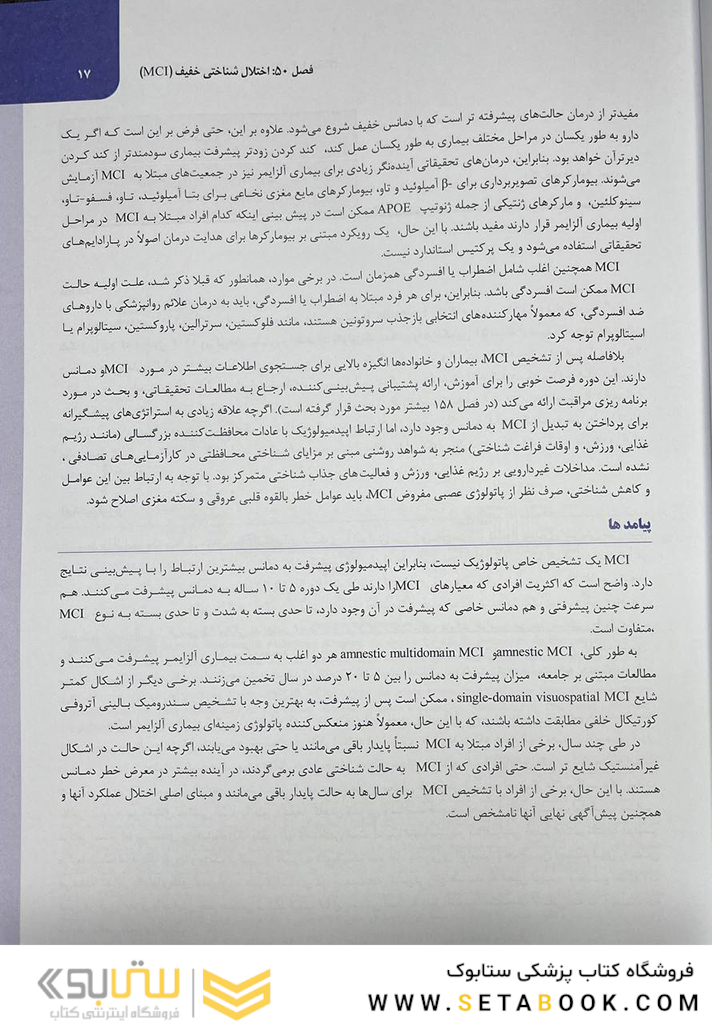 ۱۷
فصل ۵۰: اختلال شناختی خفیف (MCI)
مفیدتر از درمان حالت‌های پیشرفته تر است که با دمانس خفیف شروع می‌شود. علاوه بر این، حتی فرض بر این است که اگر یک
دارو به طور یکسان در مراحل مختلف بیماری به طور یکسان عمل کند، کند کردن زودتر پیشرفت بیماری سودمندتر از کند کردن
دیرترآن خواهد بود. بنابراین، درمان‌های تحقیقاتی آینده‌نگر زیادی برای بیماری آلزایمر نیز در جمعیت‌های مبتلا به MCI آزمایش
می‌شوند. بیومارکرهای تصویربرداری برای β- آمیلوئید و تاو، بیومارکرهای مایع مغزی نخاعی برای بتا آمیلوئید، تاو، فسفو-تاو،
سینوکلئین، و مارکرهای ژنتیکی از جمله ژنوتیپ APOE ممکن است در پیش بینی اینکه کدام افراد مبتلا به MCI در مراحل
اولیه بیماری آلزایمر قرار دارند مفید باشند. با این حال، یک رویکرد مبتنی بر بیومارکرها برای هدایت درمان اصولاً در پارادایم‌های
تحقیقاتی استفاده می‌شود و یک پرکتیس استاندارد نیست.
MCI همچنین اغلب شامل اضطراب یا افسردگی همزمان است. در برخی موارد، همانطور که قبلا ذکر شد، علت اولیه حالت
MCI ممکن است افسردگی باشد. بنابراین، برای هر فرد مبتلا به اضطراب یا افسردگی، باید به درمان علائم روانپزشکی با داروهای
ضد افسردگی، که معمولاً مهارکننده‌های انتخابی بازجذب سروتونین هستند، مانند فلوکستین، سرترالین، پاروکستین، سیتالوپرام یا
اسیتالوپرام توجه کرد.
بلافاصله پس از تشخیص MCI، بیماران و خانواده‌ها انگیزه بالایی برای جستجوی اطلاعات بیشتر در مورد MCIو دمانس
دارند. این دوره فرصت خوبی را برای آموزش، ارائه پشتیبانی پیش‌بینی‌کننده، ارجاع به مطالعات تحقیقاتی، و بحث در مورد
برنامه ریزی مراقبت ارائه می‌کند (در فصل ۱۵۸ بیشتر مورد بحث قرار گرفته است). اگرچه علاقه زیادی به استراتژی‌های پیشگیرانه
برای پرداختن به تبدیل از MCI به دمانس وجود دارد، اما ارتباط اپیدمیولوژیک با عادات محافظت‌کننده بزرگسالی (مانند رژیم
غذایی، ورزش، و اوقات فراغت شناختی) منجر به شواهد روشنی مبنی بر مزایای شناختی محافظتی در کارآزمایی‌های تصادفی ،
نشده است. مداخلات غیردارویی بر رژیم غذایی، ورزش و فعالیت‌های جذاب شناختی متمرکز بود. با توجه به ارتباط بین این عوامل
و کاهش شناختی، صرف نظر از پاتولوژی عصبی مفروض MCI، باید عوامل خطر بالقوه قلبی عروقی و سکته مغزی اصلاح شود.
پیامد ها
MCI یک تشخیص خاص پاتولوژیک نیست، بنابراین اپیدمیولوژی پیشرفت به دمانس بیشترین ارتباط را با پیش‌بینی نتایج
دارد. واضح است که اکثریت افرادی که معیارهای MCIرا دارند طی یک دوره ۵ تا ۱۰ ساله به دمانس پیشرفت می‌کنند. هم
سرعت چنین پیشرفتی و هم دمانس خاصی که پیشرفت در آن وجود دارد، تا حدی بسته به شدت و تا حدی بسته به نوع MCI
،متفاوت است.
به طور کلی، amnestic MCIو amnestic multidomain MCI هر دو اغلب به سمت بیماری آلزایمر پیشرفت می‌کنند و
مطالعات مبتنی بر جامعه، میزان پیشرفت به دمانس را بین ۵ تا ۲۰ درصد در سال تخمین می‌زنند. برخی دیگر از اشکال کمتر
شایع single-domain visuospatial MCI ، ممکن است پس از پیشرفت، به بهترین وجه با تشخیص سندرومیک بالینی آتروفی
کورتیکال خلفی مطابقت داشته باشند، که با این حال، معمولاً هنوز منعکس‌کننده پاتولوژی زمینه‌ای بیماری آلزایمر است.
در طی چند سال، برخی از افراد مبتلا به MCI نسبتاً پایدار باقی می‌مانند یا حتی بهبود می‌یابند، اگرچه این حالت در اشکال
غیرآمنستیک شایع تر است. حتی افرادی که از MCI به حالت شناختی عادی برمی‌گردند، در آینده بیشتر در معرض خطر دمانس
هستند. با این حال، برخی از افراد با تشخیص MCI برای سال‌ها به حالت پایدار باقی می‌مانند و مبنای اصلی اختلال عملکرد آنها و
همچنین پیش‌آگهی نهایی آنها نامشخص است.
فروشگاه کتاب پزشکی ستابوک
WWW.SETABOOK.COM
ستابوک
فروشگاه اینترنتی کتاب